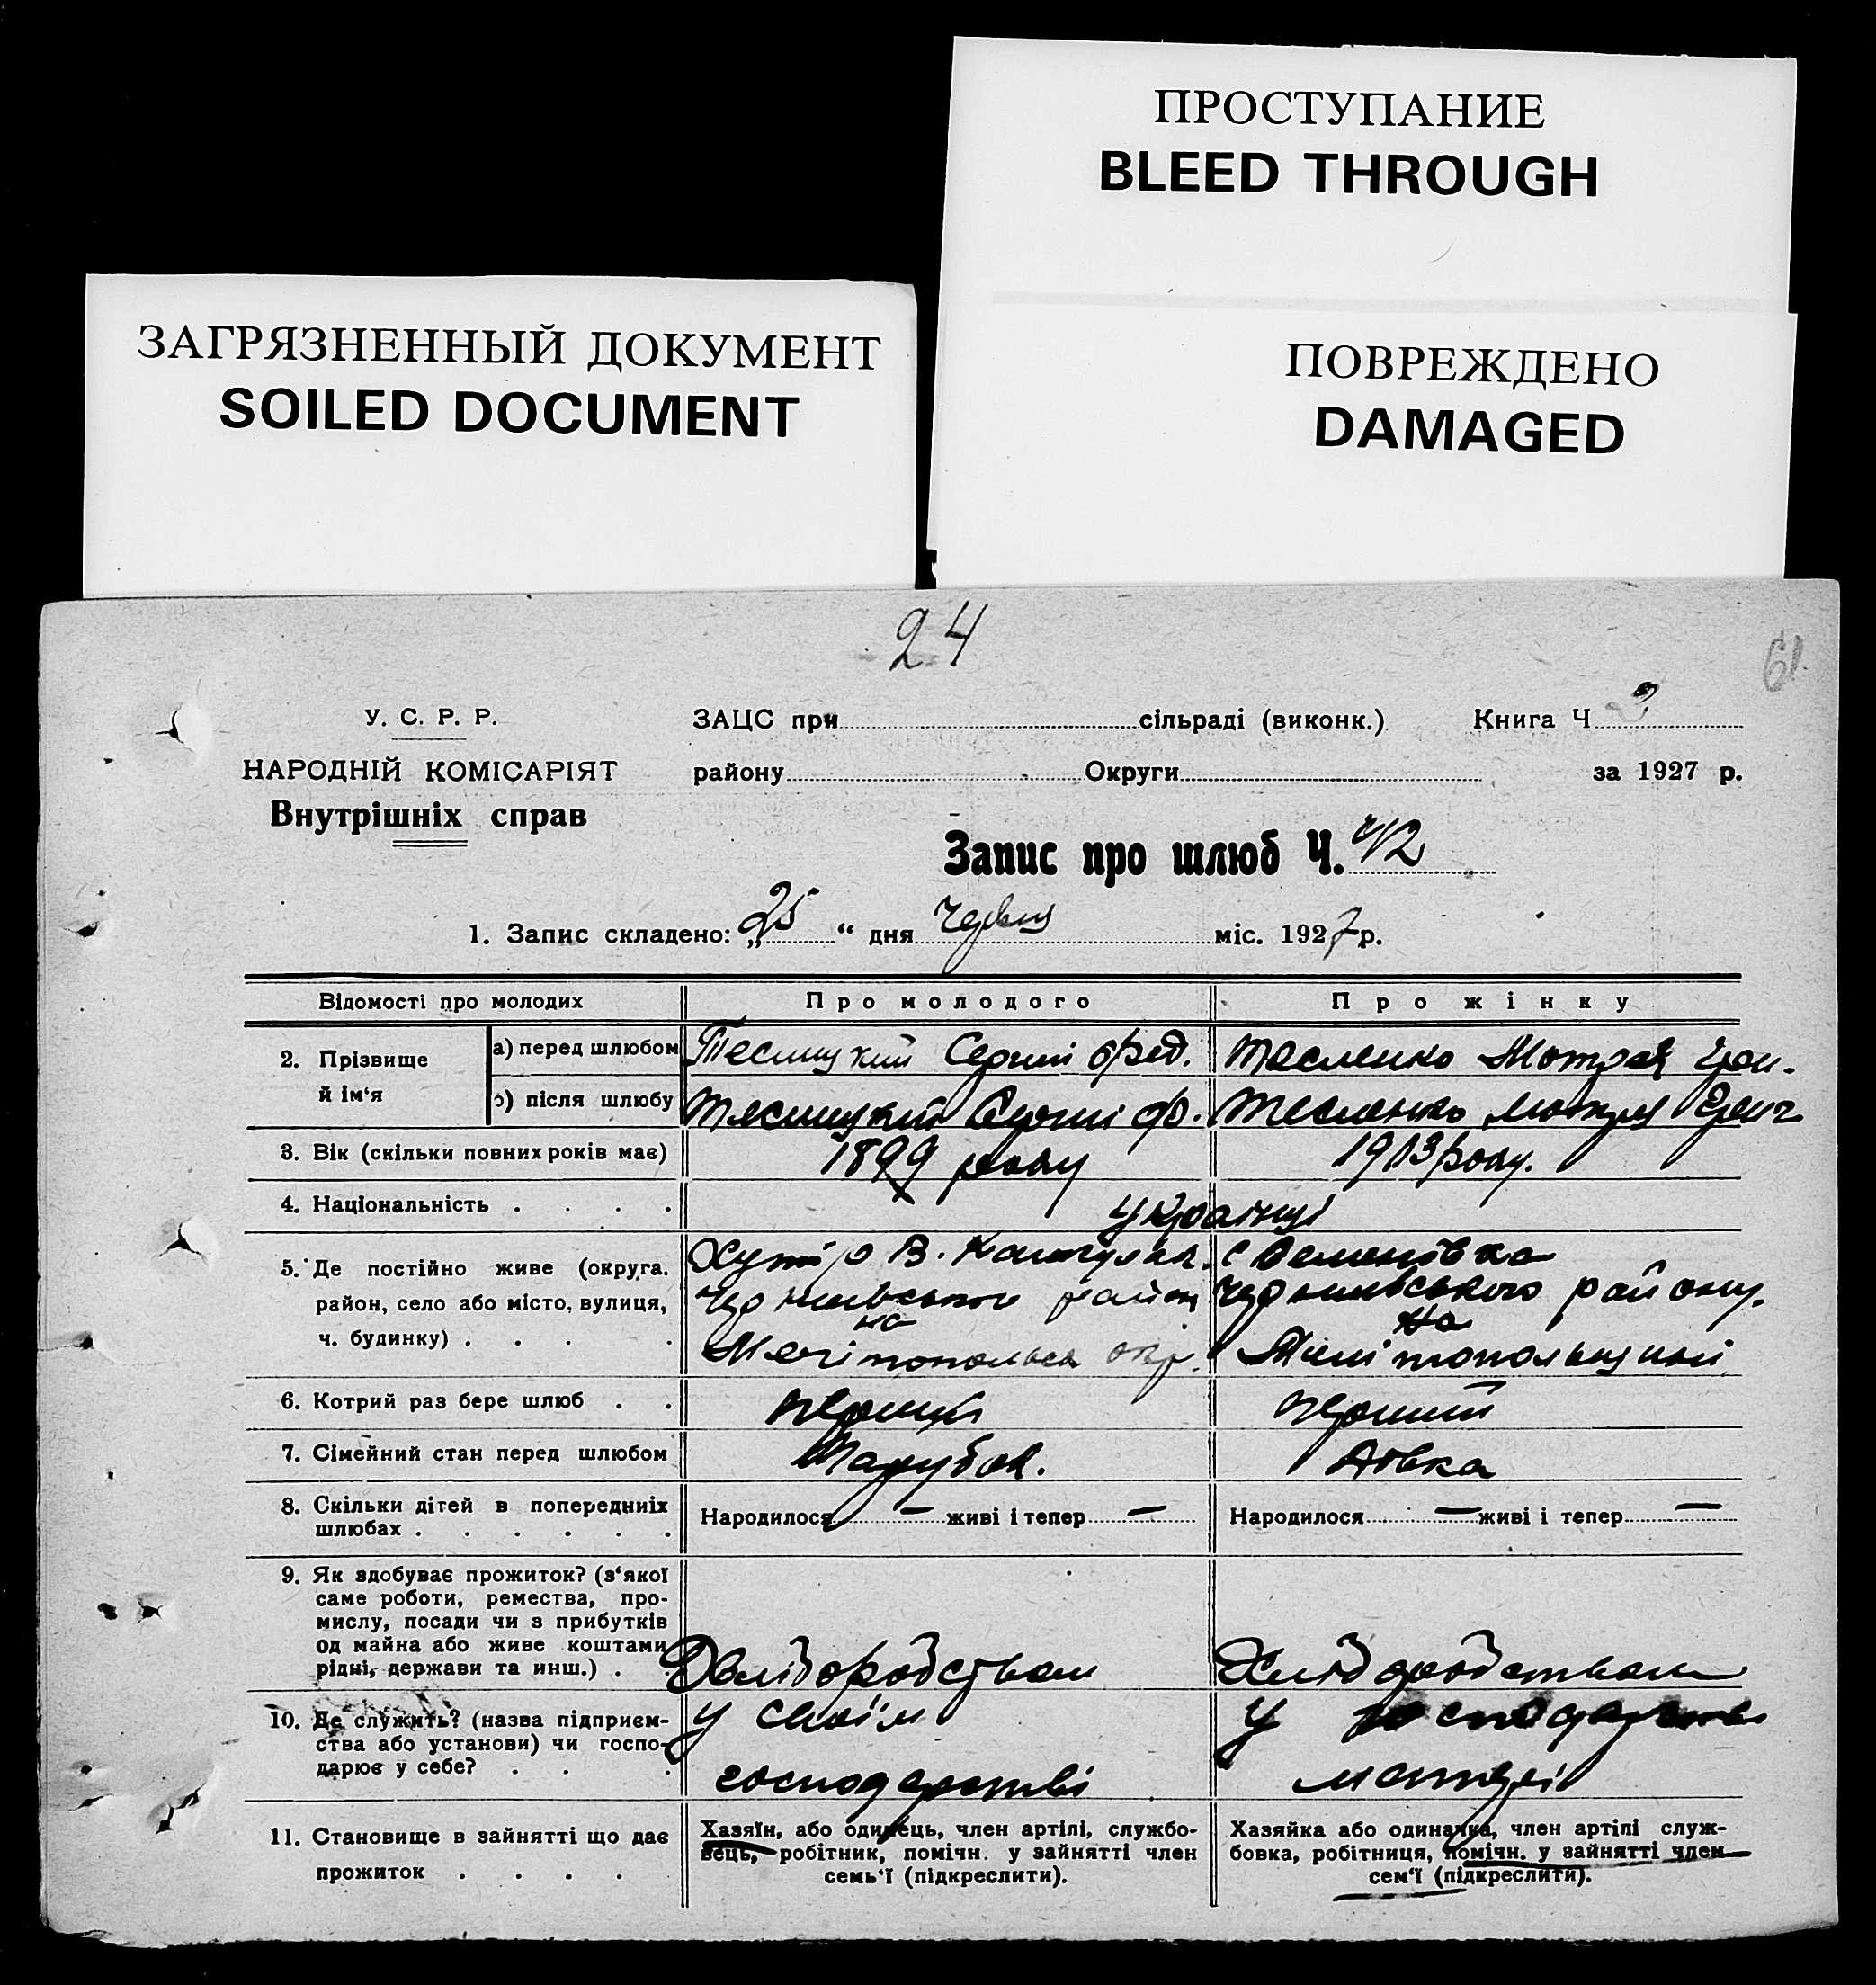 ПРОСТУПАНИЕ
BLEED THROUGH
ЗАГРЯЗНЕННЫЙ ДОКУМЕНТ
SOILED DOCUMENT
ПОВРЕЖДЕНО
DAMAGED
24
61
У. С. Р. Р.
НАРОДНІЙ КОМІСАРІЯТ
Внутрішніх справ
ЗАЦС при сільраді (виконк.) Книга Ч
району Округи за 1927 р.
Запис про шлюб Ч. 42
1. Запис складено: „25“ дня червня міс. 1927 р.
Відомості про молодих
Про молодого
Про жінку
2. Прізвище й ім‘я
а) перед шлюбом
Сергій Фед.
Тесленко Мотря
б) після шлюбу
Сергій Ф.
Тесленко Мотря
3. Вік (скільки повних років має)
1899 року
1913 року.
4. Національність . . . .
Українці
5. Де постійно живе (округа,
район, село або місто, вулиця,
ч. будинку) . . . .
Хутір В.
району
на
окр.
с Семенівка
району.
на
6. Котрий раз бере шлюб . .
перший
перший
7. Сімейний стан перед шлюбом
Парубок.
дівка
8. Скільки дітей в попередниіх
шлюбах . . . . . .
Народилося — живі і тепер —
Народилося — живі і тепер —
9. Як здобуває прожиток? (з‘якої
саме роботи, ремества, про-
мислу, посади чи з прибутків
од майна або живе коштами
рідні, держави та инш.) . .
Хліборобством
Хліборобством
10. Де служить? (назва підприєм-
ства або установи) чи госпо-
дарює у себе? . . .
у своїм
господарстві
у господарстві
матері
11. Становище в зайнятті що дає
прожиток . . . .
Хазяїн, або одинець, член артілі, службо-
вець, робітник, помічн. у зайнятті член
семь‘ї (підкреслити).
Хазяйка або одиначка, член артілі служ-
бовка, робітниця, помічн. у зайнятті член
сем‘ї (підкреслити).